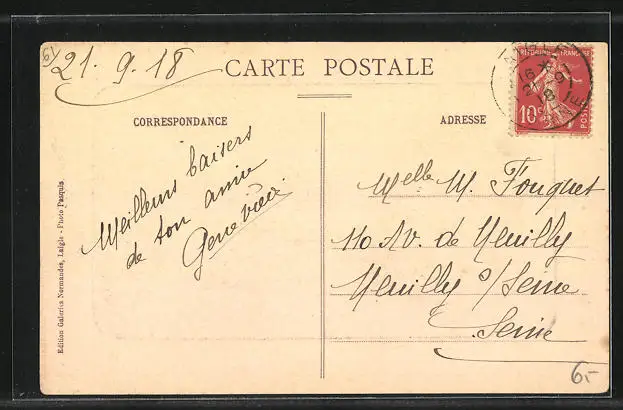 61
21.9.18
CARTE POSTALE
RÉPUBLIQUE FRANÇAISE
10c
POSTES
16 *
21 -9
18
CORRESPONDANCE
ADRESSE
Meilleurs baisers
de ton amie
Geneviève.
Melle M. Fouquet
110 Av. de Neuilly
Neuilly s/Seine
Seine
Edition Galeries Normandes, Laigle - Photo Pasquis
6-